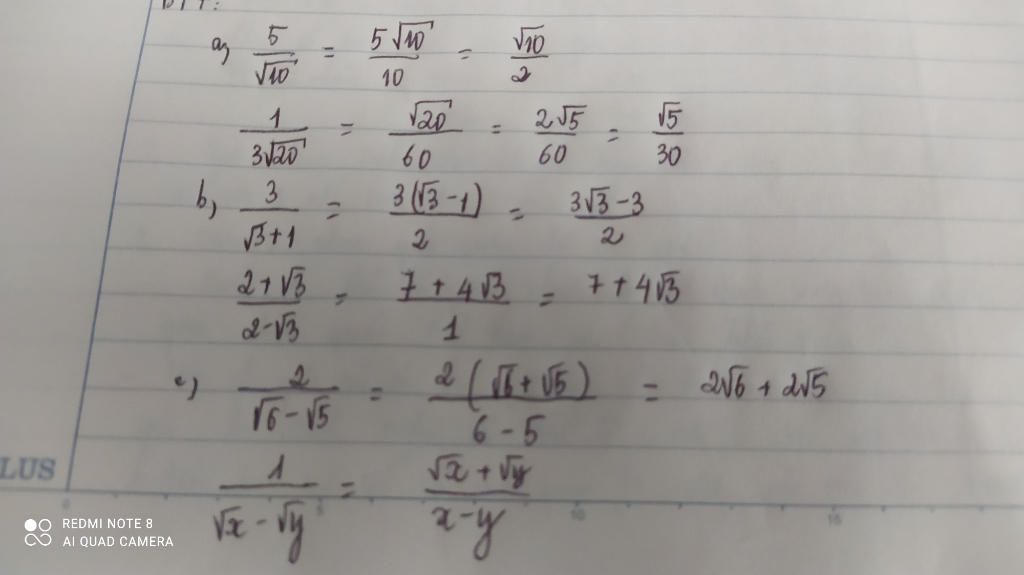 a, 5/√10 = 5√10/10 = √10/2
1/3√20 = √20/60 = 2√5/60 = √5/30
b, 3/(√3+1) = 3(√3-1)/2 = (3√3-3)/2
(2+√3)/(2-√3) = (7+4√3)/1 = 7+4√3
c, 2/(√6-√5) = 2(√6+√5)/(6-5) = 2√6+2√5
LUS
1/(√x-√y) = (√x+√y)/(x-y)
0 5 10 15
REDMI NOTE 8
AI QUAD CAMERA